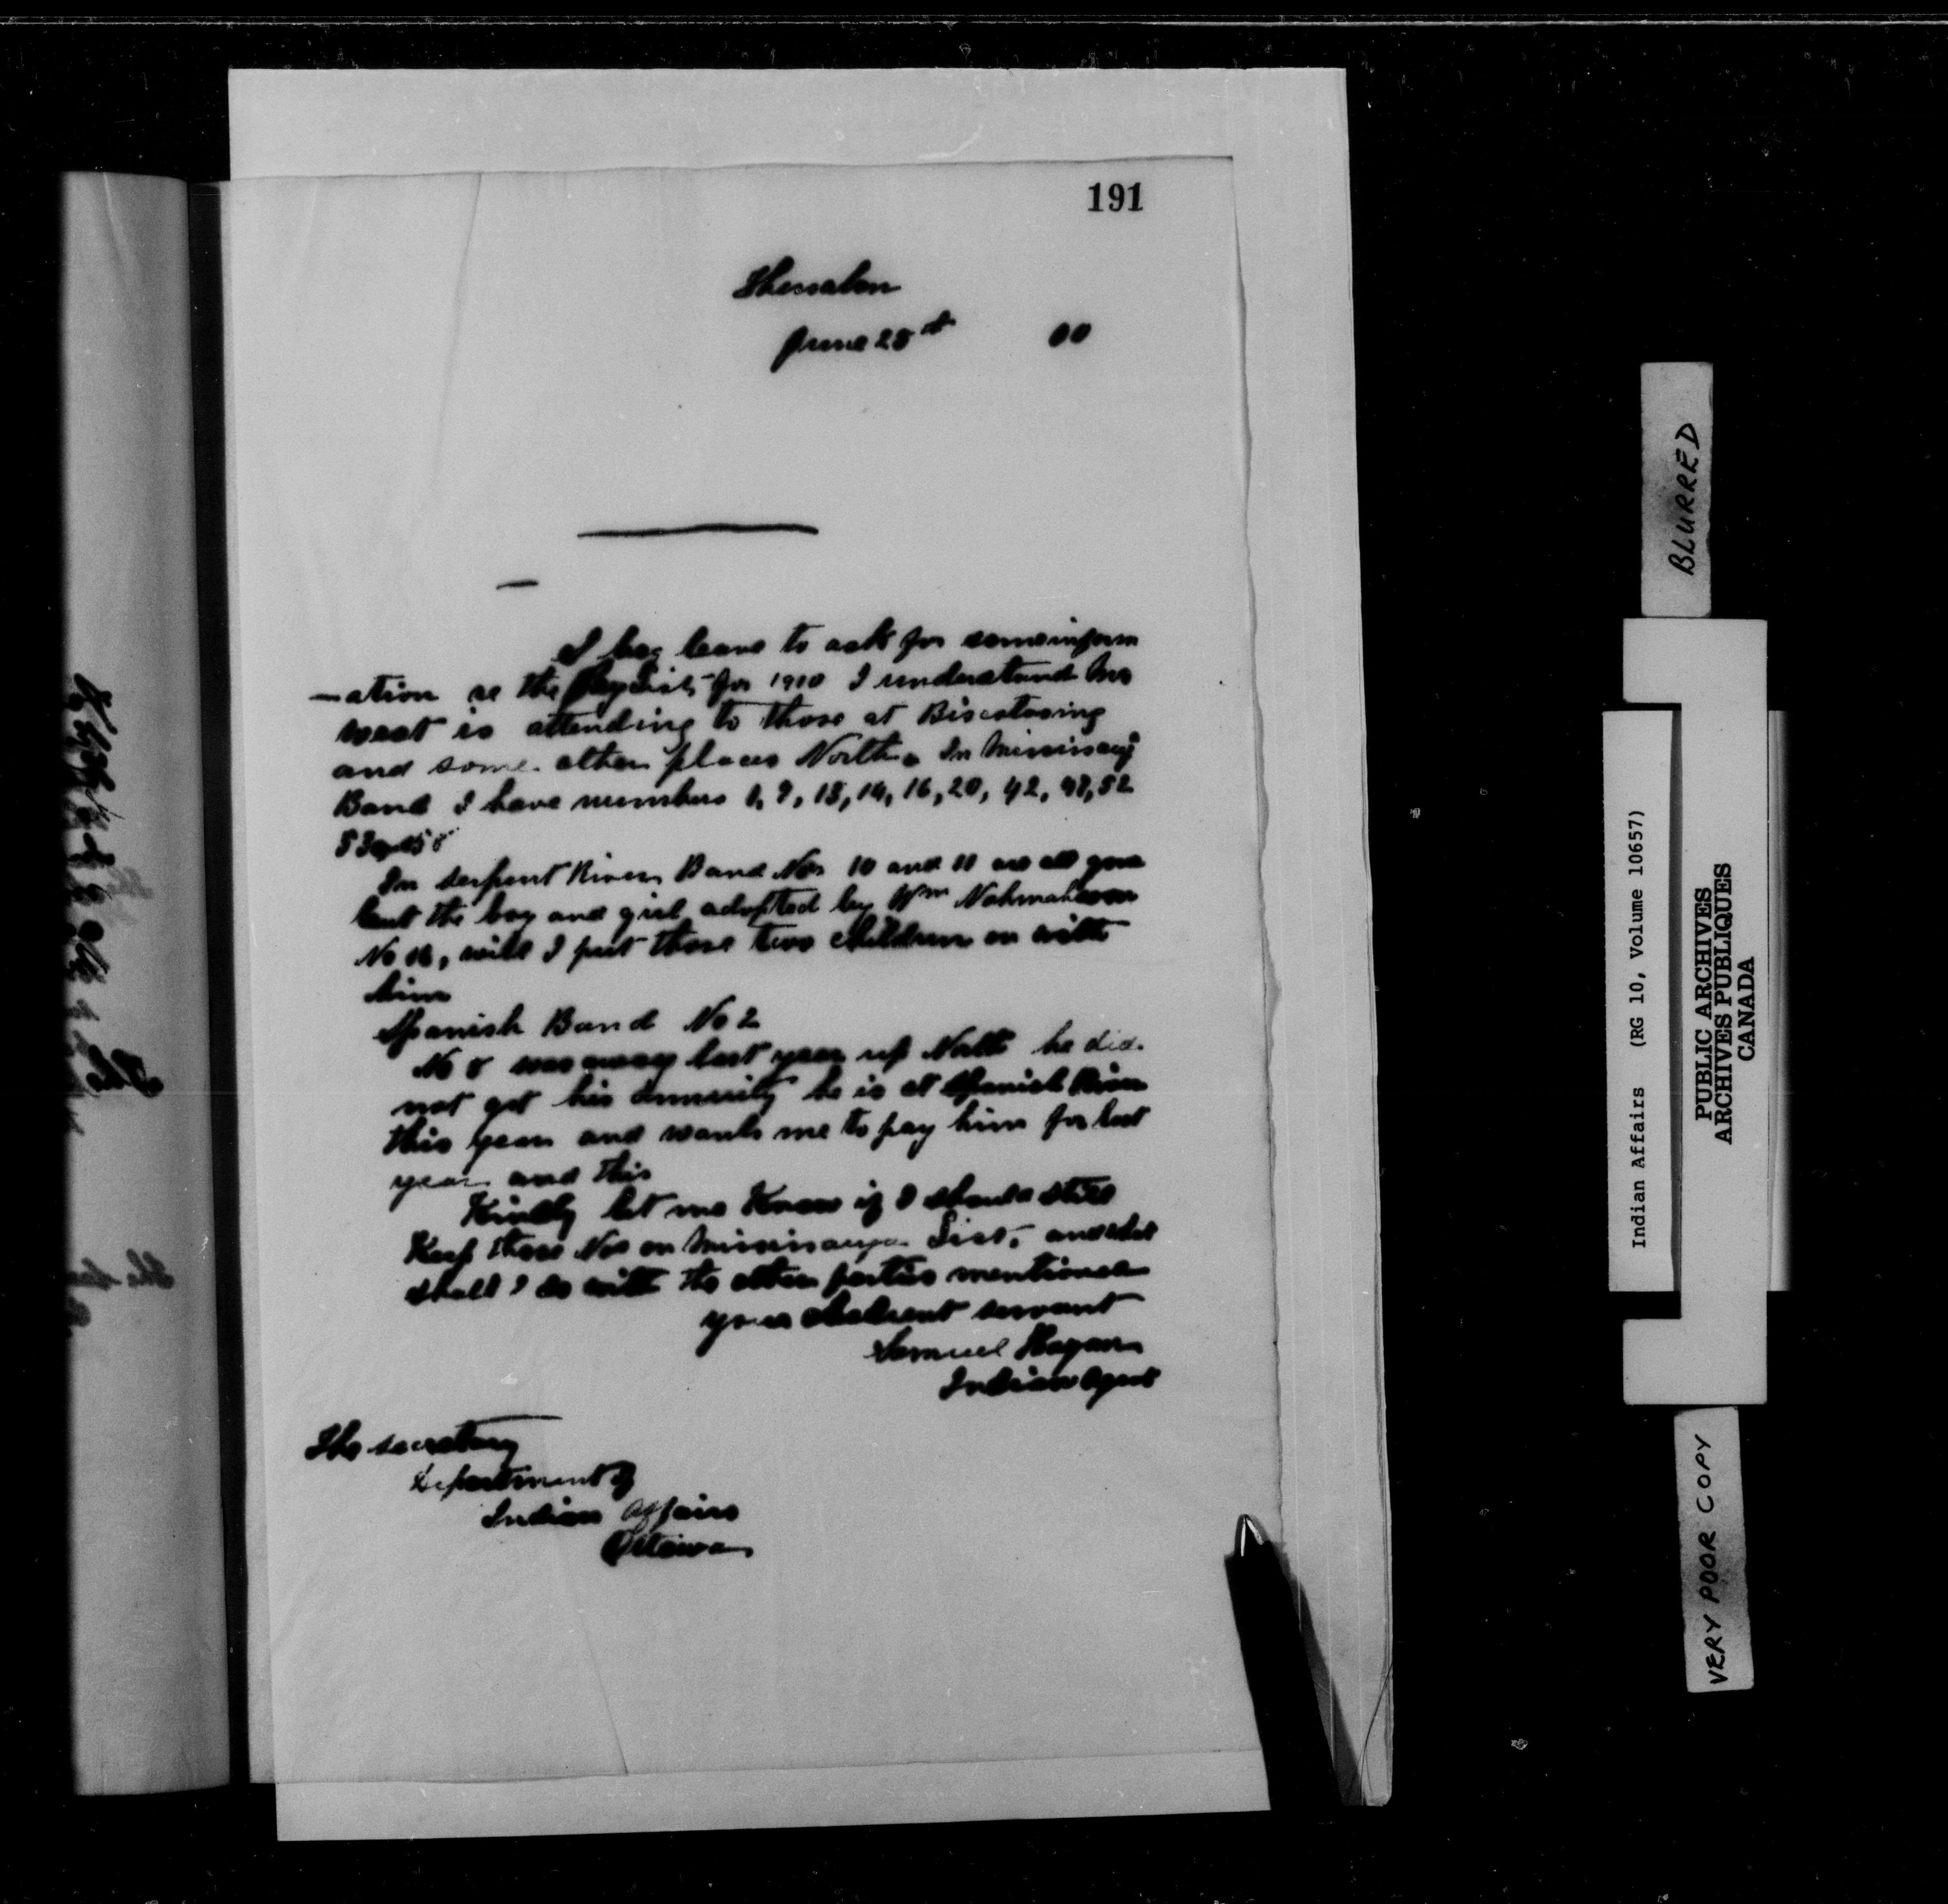 191
Thessalon
June 28th 00
I beg leave to ask for some inform
-ation re the Pay Lists for 1910 I understand Mr
West is attending to those at Biscotasing
and some other places North. In Mississagi
Band I have numbers 1, 9, 13, 14, 16, 20, 42, 48, 52
53
In Serpent River Band Nos 10 and 11 are all gone
but the boy and girl adopted by Wm
No 16, will I put those two children on with
him
Spanish Band No 2
No 8 was away last year up North he did
not get his annuity he is at Spanish River
this year and wants me to pay him for last
year and this
Kindly let me Know if I should still
Keep those Nos on Mississauga List, and what
shall I do with the other parties mentioned
your obedient servant
Samuel Hagan
Indian Agent
The Secretary
Department of
Indian Affairs
Ottawa
BLURRED
Indian Affairs (RG 10, Volume 10657)
PUBLIC ARCHIVES
ARCHIVES PUBLIQUES
CANADA
VERY POOR COPY